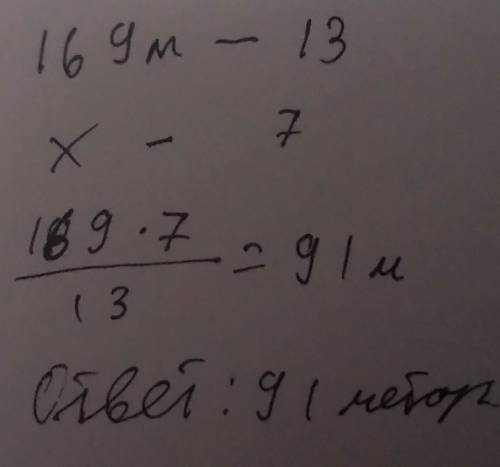 169м – 13
x – 7
169 · 7
13
= 91м
Ответ: 91 метор